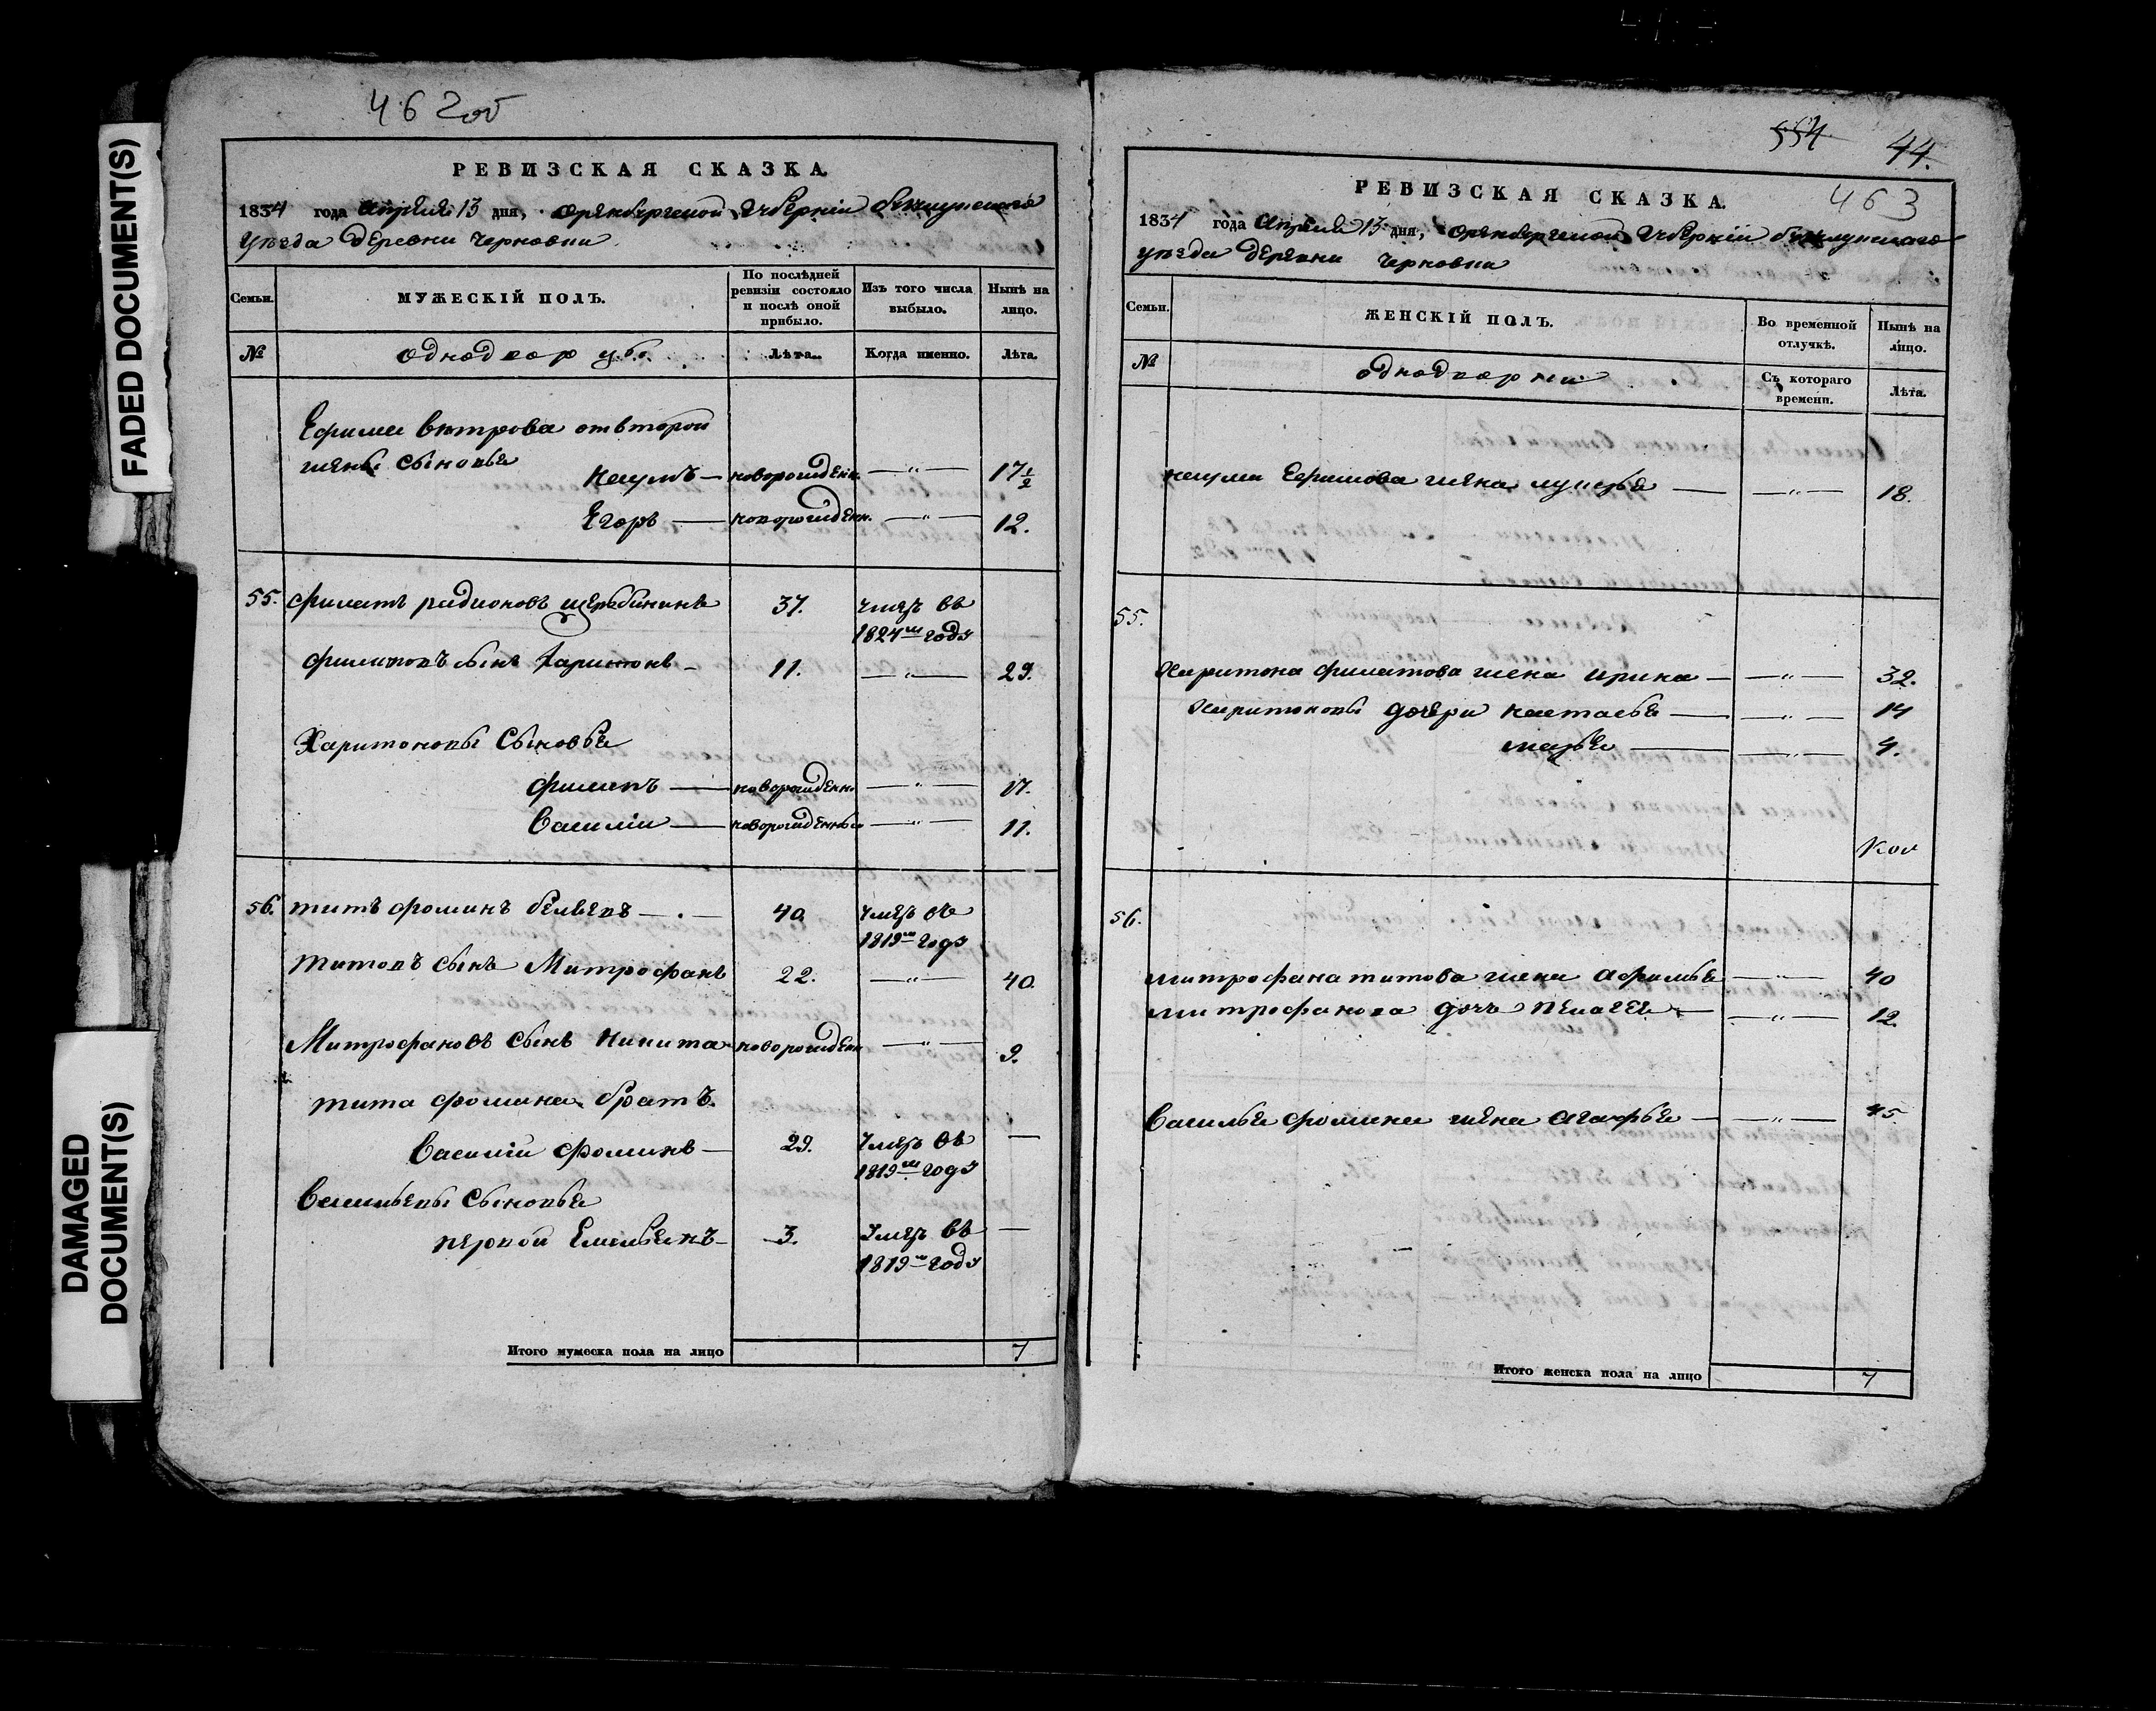 FADED DOCUMENT(S)
DAMAGED
DOCUMENT(S)
462об
РЕВИЗСКАЯ СКАЗКА.
1834 года Апреля 13 дня, Оренбургской губернiи бузулукскаго
уезда деревни Черновки
Семьи.
МУЖЕСКІЙ ПОЛЪ.
По послѣдней
ревизіи состояло
и послѣ оной
прибыло.
Изъ того числа
выбыло.
Нынѣ на
лицо.
№
Лѣта.
Когда именно.
Лѣта.
Ефима ветрова отвторой
жены сыновья
наумъ — новорожденн. —〃— 17½
Егоръ — новорожденн. —〃— 12.
55. филатъ радионовъ щербининъ 37. умеръ въ
1824м году
филатовъ сынъ харитонъ — 11. —〃— 29.
Харитоновы сыновья
филипъ — новорожденн. —〃— 17.
василiи — новорожденныи —〃— 11.
56. титъ фоминъ 40. умеръ въ
1819м году
титовъ сынъ Митрофанъ 22. —〃— 40.
Митрофановъ сынъ никита новорожденн —〃— 9.
тита фомина братъ
василiи фоминъ — 29. умеръ въ —
1819м году
васильевы сыновья
первои Емельянъ — 3. умеръ въ —
1819м году
Итого мужеска пола на лицо 7
554 44.
463
РЕВИЗСКАЯ СКАЗКА.
1834 года Апреля 13 дня, Оренбургской губернiи бузулукскаго
уезда деревни Черновки
Семьи.
ЖЕНСКІЙ ПОЛЪ.
Во временной
отлучкѣ.
Нынѣ на
лицо.
№
однодворки
Съ котораго
времени.
Лѣта.
наума Ефимова жена лукерья — —〃— 18.
55.
харитона филатова жена ирина — —〃— 32.
харитоновы дочери настасья — —〃— 14
марья — —〃— 4.
56.
митрофана титова жена афимья —〃— 40
митрофанова дочь пелагея — —〃— 12.
василья фомина жена агафья — —〃— 45
Итого женска пола на лицо 7